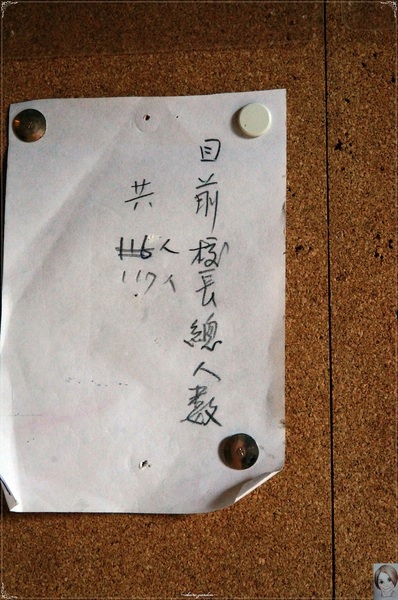 目前校長總人數
共
116人
117人